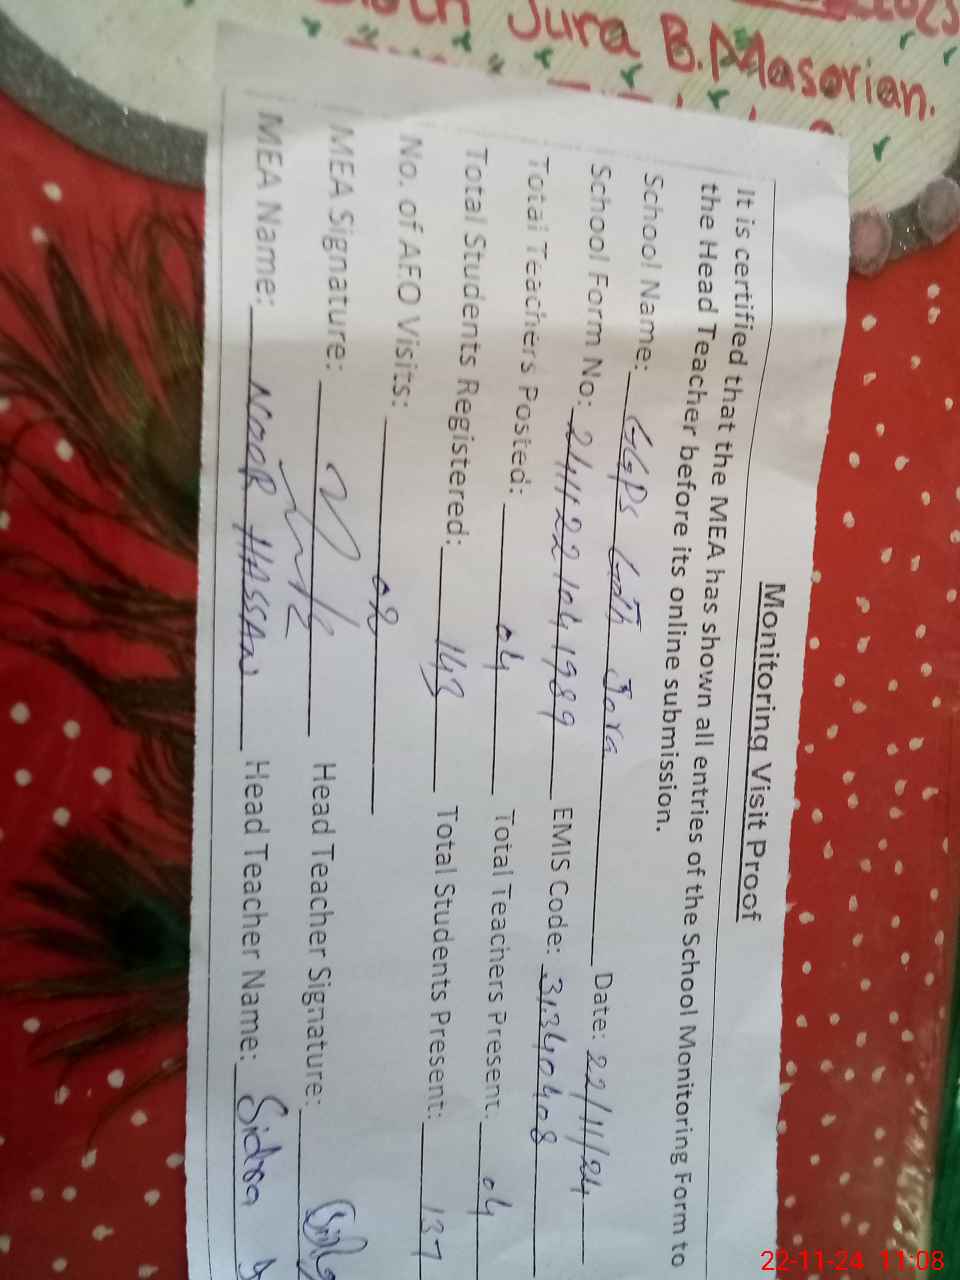 Jura B. Masorian.
Monitoring Visit Proof
It is certified that the MEA has shown all entries of the School Monitoring Form to
the Head Teacher before its online submission.
School Name: GGPS Goth Jora Date: 22/11/24
School Form No: 2411221041989 EMIS Code: 31340408
Total Teachers Posted: 04 Total Teachers Present: 04
Total Students Registered: 143 Total Students Present: 137
No. of AEO Visits: 02
MEA Signature: Head Teacher Signature:
MEA Name: NOOR HASSAN Head Teacher Name: Sidra
22-11-24 11:08